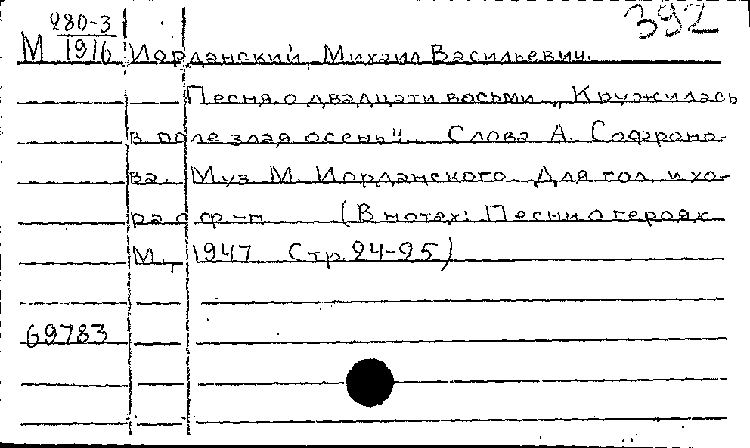 280-3
392
М 1916 Иорданский, Михаил Васильевич.
Песня о двадцати восьми „Кружилась
в поле злая осень". Слова А. Софроно-
ва. Муз. М. Иорданского. Для гол. и хо-
ра с ф-п (В нотах: Песни о героях
М., 1947 Стр. 24-25)
69783